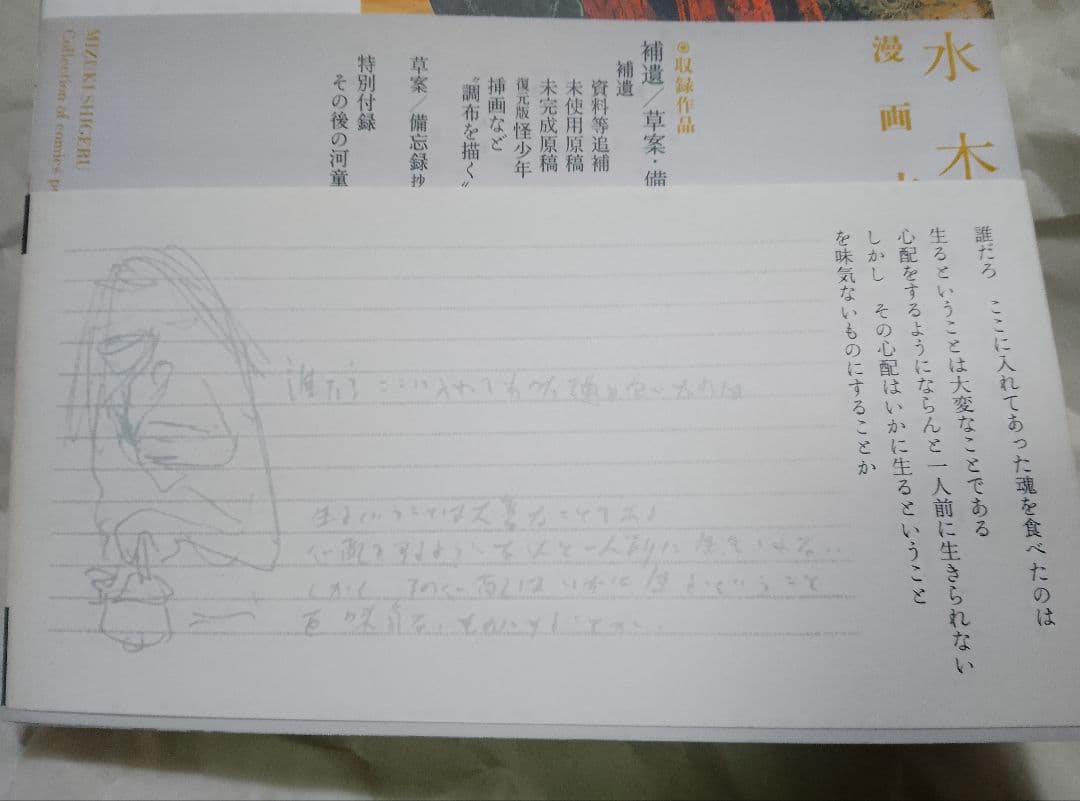 水木
漫画大
◉収録作品
補遺／草案・備
補遺
資料等追補
未使用原稿
未完成原稿
復元版 怪少年
挿画など
“調布を描く”
草案／備忘録 抄
特別付録
その後の河童
MIZUKI SHIGERU
Collection of comics
誰だろ　ここに入れてあった魂を食べたのは
生るということは大変なことである
心配をするようにならんと一人前に生きられない
しかし　その心配はいかに生るということ
を味気ないものにすることか
誰だろ ここに入れてあった魂を食べたのは
生るということは大変なことである
心配をするようにならんと一人前に生きられない
しかし その心配はいかに生るということ
を味気ないものにすることか